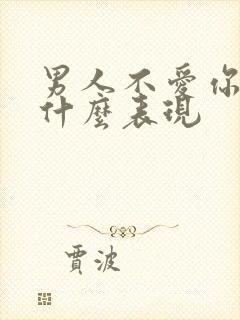 男人不愛你
什麼表現
賈波